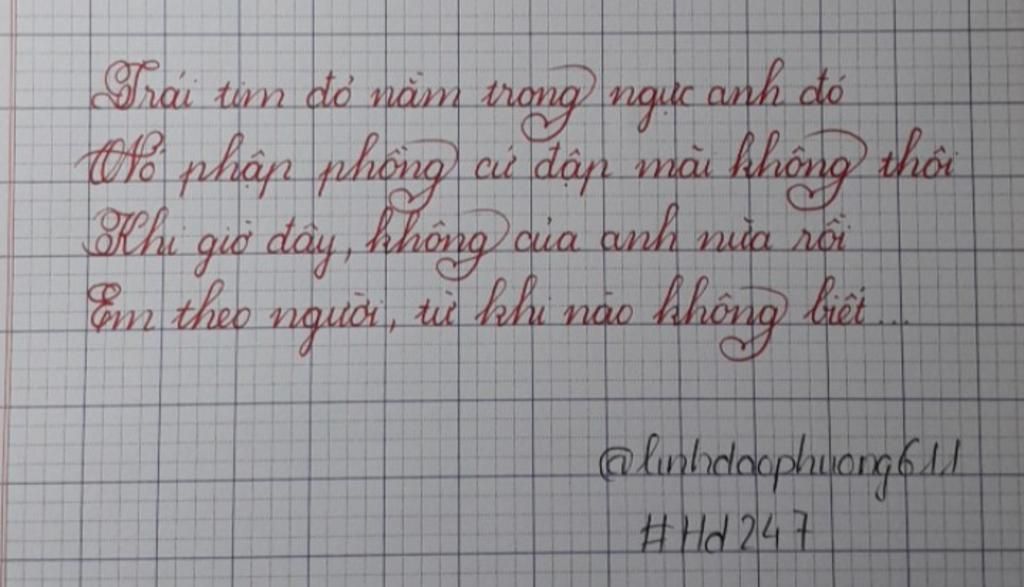 Trái tim đỏ nằm trong ngực anh đó
Nó phập phồng cứ đập mãi không thôi
Khi giờ đây, không của anh nữa rồi
Em theo người, từ khi nào không biết...
@linhdaophuong611
#Hd247